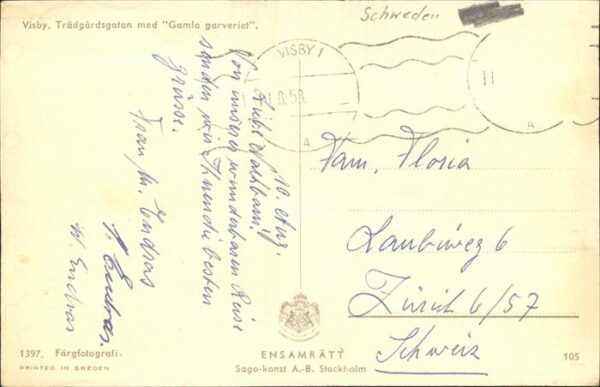 Visby. Trädgårdsgatan med "Gamla garveriet".
Schweden
VISBY 1
8.58
A
A
10. Aug.
Liebe Nachbarn!
Von unserer wunderbaren Reise
senden wir Ihnen die besten
Grüsse.
Frau M. Endras
Endras.
W. Endras
Fam. Floria
Laubiweg 6
Zürich 6/57
Schweiz
1397. Färgfotografi.
PRINTED IN SWEDEN
ENSAMRÄTT
Sago-konst A.-B. Stockholm
105